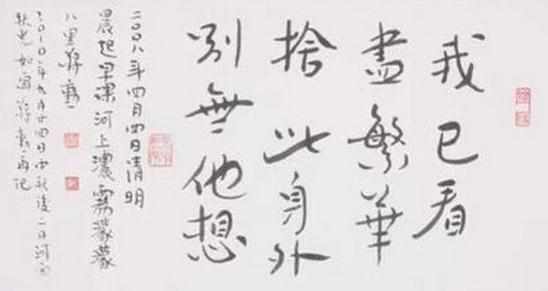 我已看
盡繁華
捨此身外
別無他想
二〇〇八年四月四日清明
晨起早課河上濃霧濛濛
八里蔣勳
二〇一〇年九月廿四日中秋後二日河
秋光如蔣勳再記